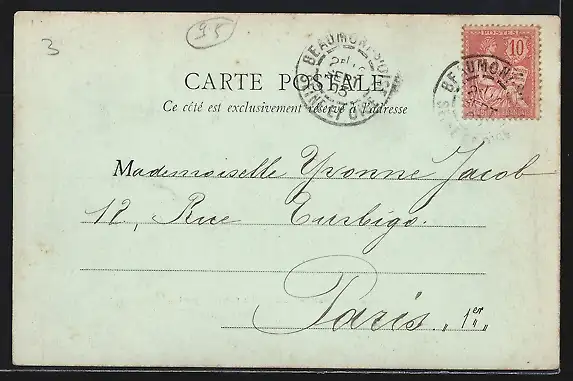 3
95
BEAUMONT-S-OISE
SEINE-ET-OISE
POSTES
10
BEAUMONT
CARTE POSTALE
Ce côté est exclusivement réservé à l'adresse
Mademoiselle Yvonne Jacob
12, Rue Turbigo.
Paris „1er„